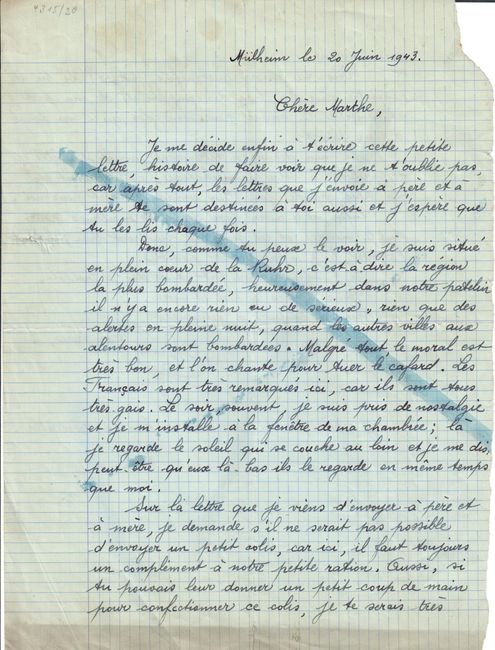 4315/20
Mülheim le 20 Juin 1943.
Chère Marthe,
Je me décide enfin à t'écrire cette petite
lettre, histoire de faire voir que je ne t'oublie pas,
car après tout, les lettres que j'envoie à père et à
mère te sont destinées à toi aussi et j'espère que
tu les lis chaque fois.
Donc, comme tu peux le voir, je suis situé
en plein coeur de la Ruhr, c'est à dire la région
la plus bombardée, heureusement dans notre patelin
il n'y a encore rien eu de sérieux, rien que des
alertes en pleine nuit, quand les autres villes aux
alentours sont bombardées. Malgré tout le moral est
très bon, et l'on chante pour tuer le cafard. Les
Français sont très remarqués ici, car ils sont tous
très gais. Le soir, souvent, je suis pris de nostalgie
et je m'installe à la fenêtre de ma chambrée; là
je regarde le soleil qui se couche au loin et je me dis,
peut-être qu'eux là-bas ils le regarde en même temps
que moi.
Sur la lettre que je viens d'envoyer à père et
à mère, je demande s'il ne serait pas possible
d'envoyer un petit colis, car ici, il faut toujours
un complément à notre petite ration. Aussi, si
tu pouvais leur donner un petit coup de main
pour confectionner ce colis, je te serais très